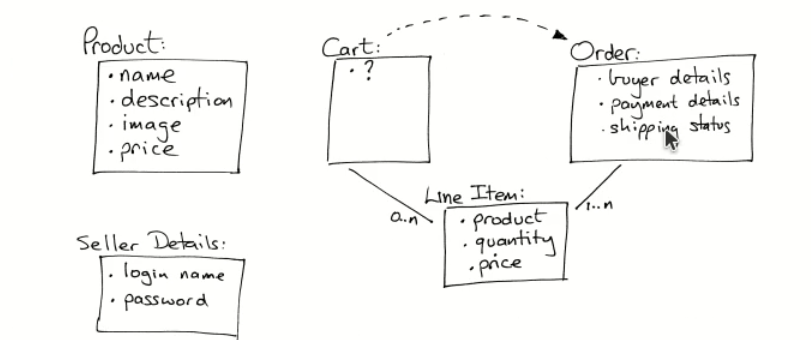 Product:
· name
· description
· image
· price
Cart:
· ?
Order:
· buyer details
· payment details
· shipping status
Line Item:
· product
· quantity
· price
0..n
1..n
Seller Details:
· login name
· password